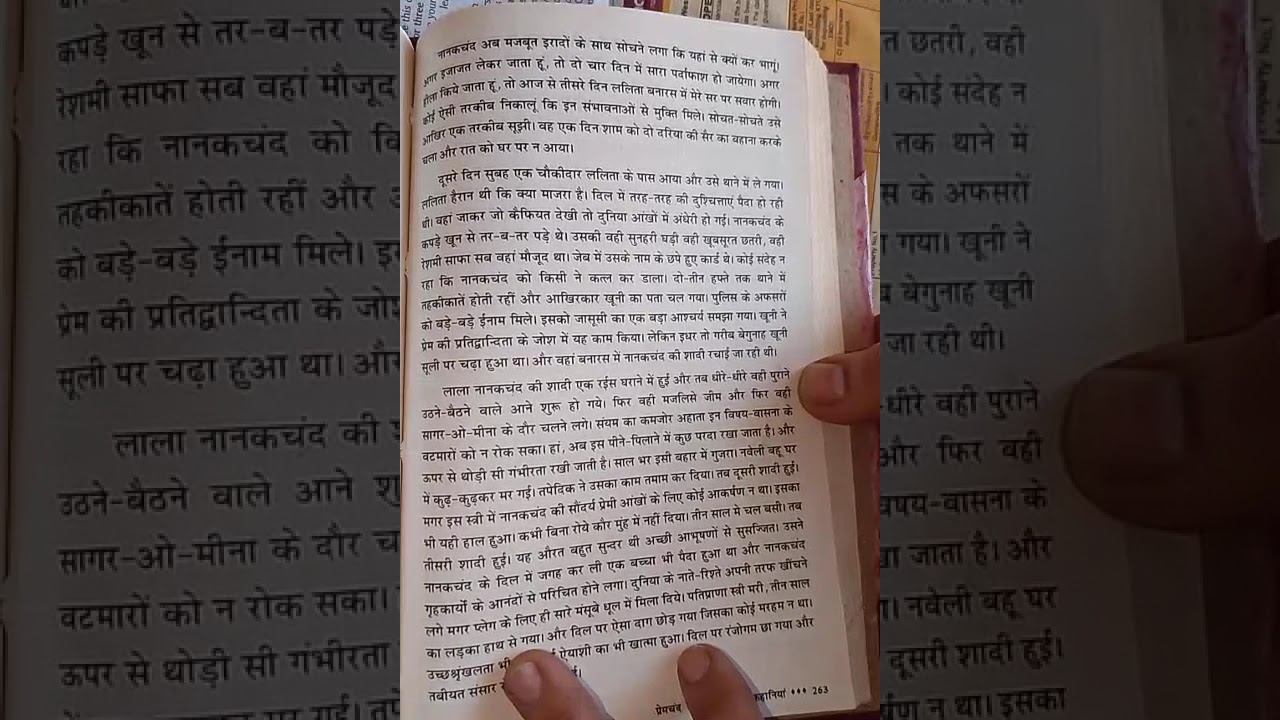 नानकचंद अब मजबूत इरादों के साथ सोचने लगा कि यहां से क्यों कर भागूं।
अगर इजाजत लेकर जाता हूं, तो दो चार दिन में सारा पर्दाफाश हो जायेगा। अगर
हीला किये जाता हूं, तो आज से तीसरे दिन ललिता बनारस में मेरे सर पर सवार होगी।
कोई ऐसी तरकीब निकालूं कि इन संभावनाओं से मुक्ति मिले। सोचत-सोचते उसे
आखिर एक तरकीब सूझी। वह एक दिन शाम को दो दरिया की सैर का बहाना करके
चला और रात को घर पर न आया।
दूसरे दिन सुबह एक चौकीदार ललिता के पास आया और उसे थाने में ले गया।
ललिता हैरान थी कि क्या माजरा है। दिल में तरह-तरह की दुश्चित्ताएं पैदा हो रही
थी। वहां जाकर जो कैफियत देखी तो दुनिया आंखों में अंधेरी हो गई। नानकचंद के
कपड़े खून से तर-ब-तर पड़े थे। उसकी वही सुनहरी घड़ी वही खूबसूरत छतरी, वही
रेशमी साफा सब वहां मौजूद था। जेब में उसके नाम के छपे हुए कार्ड थे। कोई संदेह न
रहा कि नानकचंद को किसी ने कत्ल कर डाला। दो-तीन हफ्ते तक थाने में
तहकीकातें होती रहीं और आखिरकार खूनी का पता चल गया। पुलिस के अफसरों
को बड़े-बड़े ईनाम मिले। इसको जासूसी का एक बड़ा आश्चर्य समझा गया। खूनी ने
प्रेम की प्रतिद्वान्दिता के जोश में यह काम किया। लेकिन इधर तो गरीब बेगुनाह खूनी
सूली पर चढ़ा हुआ था। और वहां बनारस में नानकचंद की शादी रचाई जा रही थी।
लाला नानकचंद की शादी एक रईस घराने में हुई और तब धीरे-धीरे वही पुराने
उठने-बैठने वाले आने शुरू हो गये। फिर वही मजलिसे जीम और फिर वही
सागर-ओ-मीना के दौर चलने लगे। संयम का कमजोर अहाता इन विषय-वासना के
वटमारों को न रोक सका। हां, अब इस पीने-पिलाने में कुछ परदा रखा जाता है। और
ऊपर से थोड़ी सी गंभीरता रखी जाती है। साल भर इसी बहार में गुजरा। नवेली बहू घर
में कुढ़-कुढ़कर मर गई। तपेदिक ने उसका काम तमाम कर दिया। तब दूसरी शादी हुई।
मगर इस स्त्री में नानकचंद की सौंदर्य प्रेमी आंखों के लिए कोई आकर्षण न था। इसका
भी यही हाल हुआ। कभी बिना रोये कौर मुंह में नहीं दिया। तीन साल मे चल बसी। तब
तीसरी शादी हुई। यह औरत बहुत सुन्दर थी अच्छी आभूषणों से सुसज्जित। उसने
नानकचंद के दिल में जगह कर ली एक बच्चा भी पैदा हुआ था और नानकचंद
गृहकार्यों के आनंदों से परिचित होने लगा। दुनिया के नाते-रिश्ते अपनी तरफ खींचने
लगे मगर प्लेग के लिए ही सारे मंसूबे धूल में मिला दिये। पतिप्राणा स्त्री मरी, तीन साल
का लड़का हाथ से गया। और दिल पर ऐसा दाग छोड़ गया जिसका कोई मरहम न था।
उच्छश्रृंखलता भी ऐयाशी का भी खात्मा हुआ। दिल पर रंजोगम छा गया और
तबीयत संसार
प्रेमचंद कहानियां ♦♦♦ 263